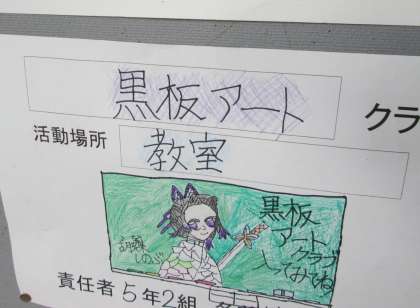 黒板アート
クラ
活動場所
教室
胡蝶
しのぶ
黒板
アート
クラブ
してみてね
責任者 5年2組